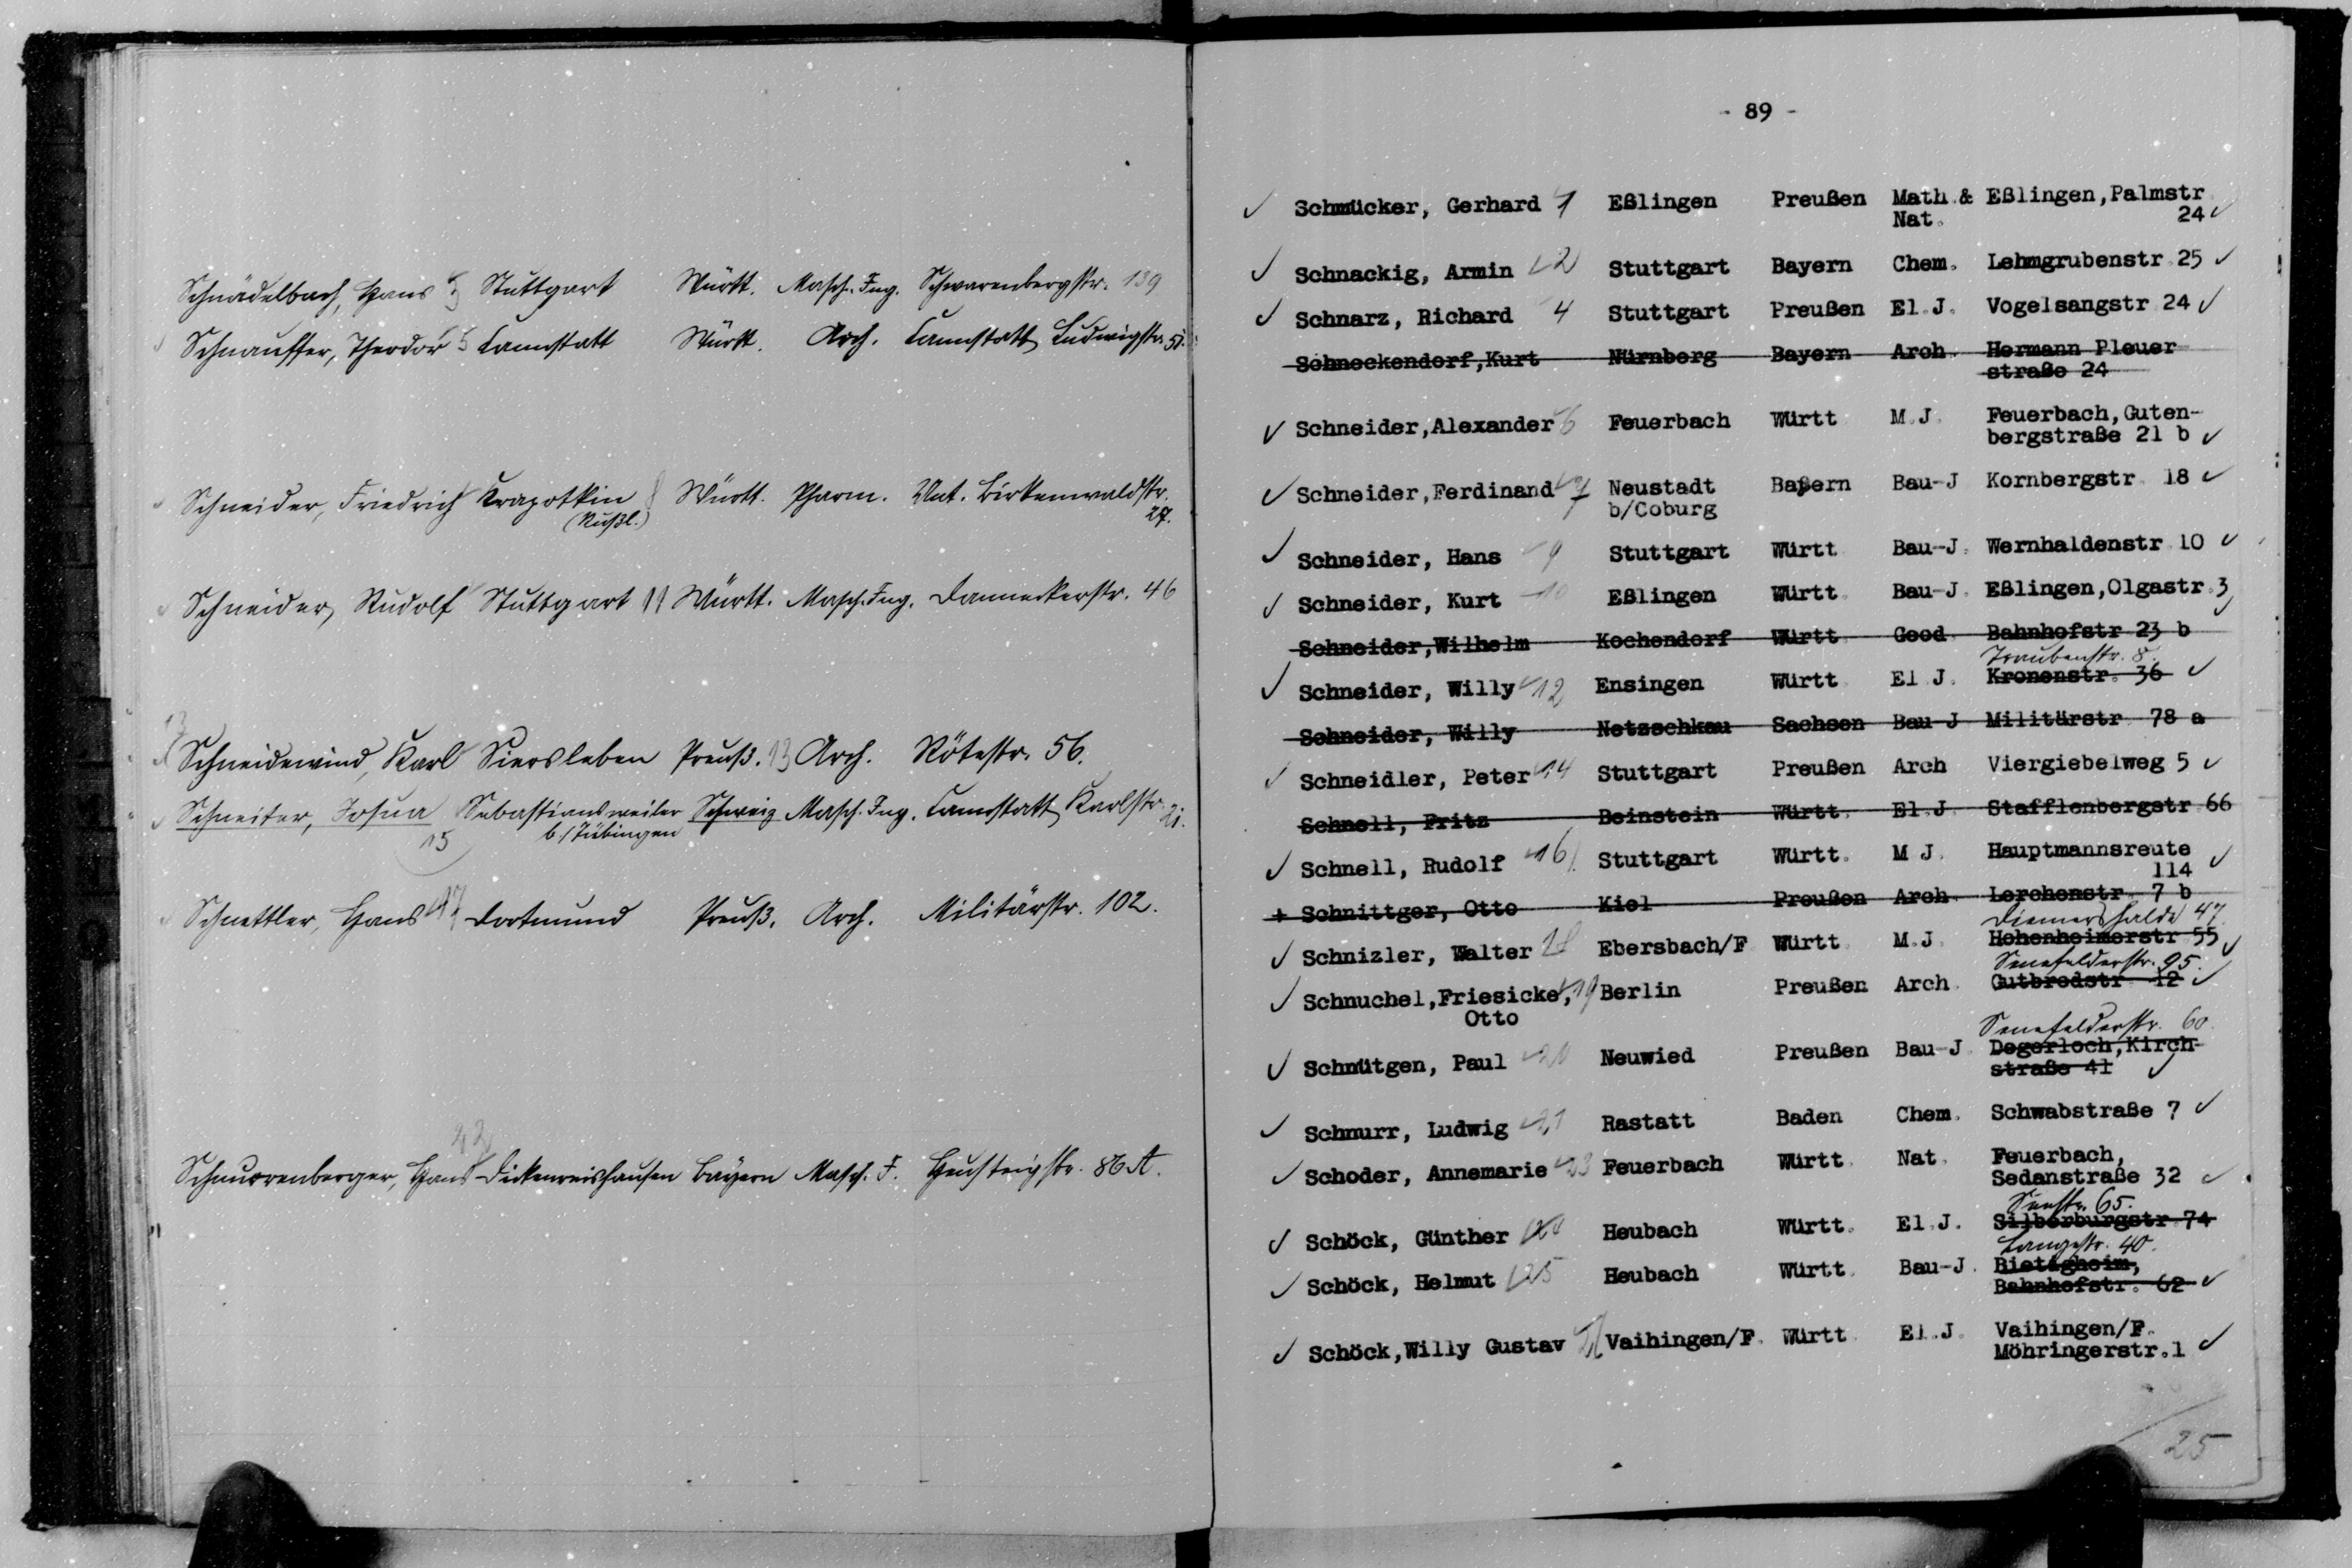 Schnädelbach, Hans 3 Stuttgart Württ. Masch. Ing. Schwarenbergstr. 139
Schnauffer, Theodor 5 Cannstatt Württ. Arch. Cannstatt Ludwigstr. 51.
Schneider, Friedrich Krapotkin 8 Württ. Pharm. Unt. Birkenwaldstr.
(Rußl.) 27.
Schneider, Rudolf Stuttgart 11 Württ. Masch. Ing. Dannekerstr. 46
13
Schneidewind, Karl Siersleben Preuß. 13 Arch. Rötestr. 56.
Schneiter, Josua Sebastiansweiler Schweiz Masch. Ing. Cannstatt Karlstr. 21.
15 b./Tübingen
Schnettler, Hans 17 Dortmund Preuß. Arch. Militärstr. 102.
22
Schnurrenberger, Hans Dickenreishausen Bayern Masch. I. Heusteigstr. 86 A.
- 89 -
Schmücker, Gerhard 1 Eßlingen Preußen Math.& Eßlingen,Palmstr
Nat. 24
Schnackig, Armin 2 Stuttgart Bayern Chem. Lehmgrubenstr.25
Schnarz, Richard 4 Stuttgart Preußen El.J. Vogelsangstr 24
Schneckendorf,Kurt Nürnberg Bayern Arch. Hermann Pleuer-
straße 24
Schneider,Alexander 6 Feuerbach Württ M.J. Feuerbach,Guten-
bergstraße 21 b
Schneider,Ferdinand 7 Neustadt Bayern Bau-J Kornbergstr. 18
b/Coburg
Schneider, Hans 9 Stuttgart Württ Bau-J. Wernhaldenstr 10
Schneider, Kurt 10 Eßlingen Württ. Bau-J. Eßlingen,Olgastr.3
Schneider,Wilhelm Kochendorf Württ. Geod. Bahnhofstr 23 b
Traubenstr. 8.
Schneider, Willy 12 Ensingen Württ El J. Kronenstr. 36
Schneider, Willy Netzschkau Sachsen Bau-J Militärstr. 78 a
Schneidler, Peter 14 Stuttgart Preußen Arch Viergiebelweg 5
Schnell, Fritz Beinstein Württ. El.J Stafflenbergstr 66
Schnell, Rudolf 16 Stuttgart Württ. M J. Hauptmannsreute
114
+ Schnittger, Otto Kiel Preußen Arch. Lerchenstr. 7 b
Diemershalde 47.
Schnizler, Walter 18 Ebersbach/F Württ M.J. Hohenheimerstr 55
Senefelderstr. 95.
Schnuchel,Friesicke, 19 Berlin Preußen Arch. Gutbrodstr 12
Otto
Senefelderstr. 60.
Schnütgen, Paul 20 Neuwied Preußen Bau-J. Degerloch,Kirch-
straße 41
Schnurr, Ludwig 21 Rastatt Baden Chem. Schwabstraße 7
Schoder, Annemarie 23 Feuerbach Württ. Nat. Feuerbach,
Sedanstraße 32
65.
Schöck, Günther Heubach Württ. El.J. Silberburgstr.74
Langestr. 40.
Schöck, Helmut 25 Heubach Württ. Bau-J. Bietigheim,
Bahnhofstr. 62
Schöck,Willy Gustav Vaihingen/F. Württ. El.J. Vaihingen/F.
Möhringerstr.1
25